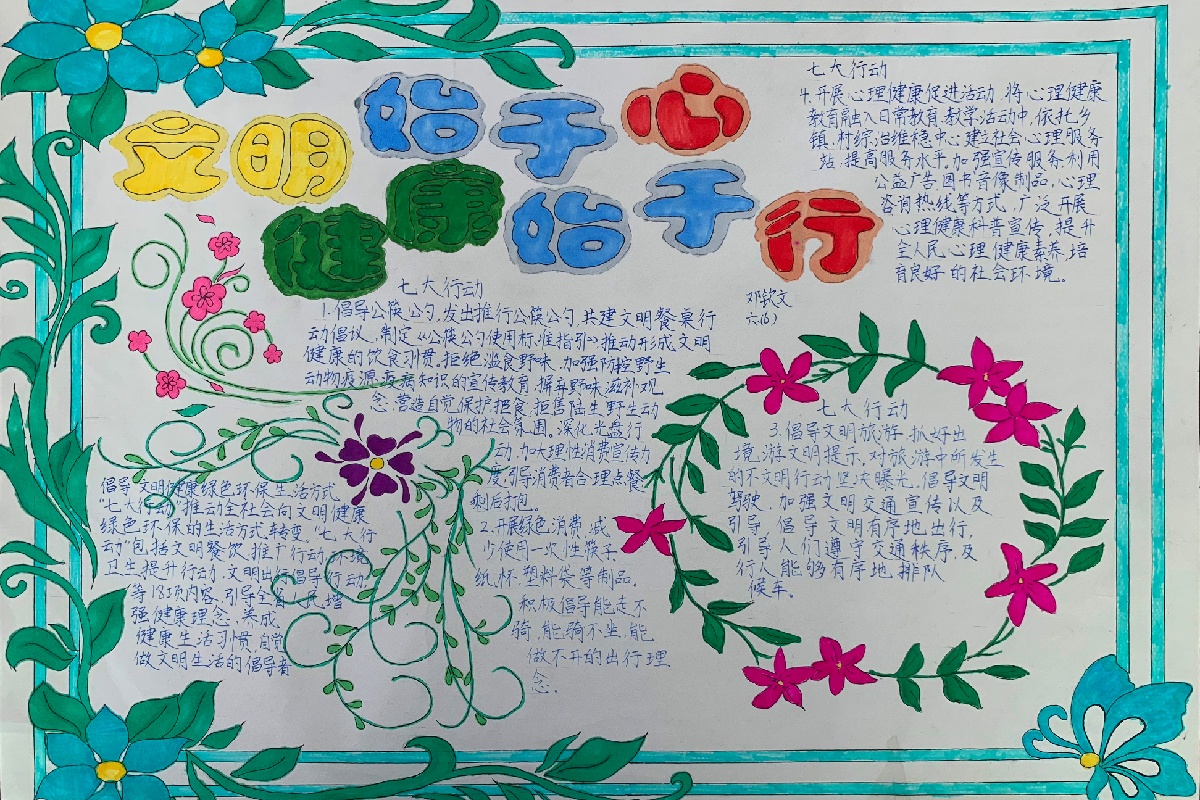 文明始于心
健康始于行
七大行动
4.开展心理健康促进活动，将心理健康
教育融入日常教育、教学活动中，依托乡
镇、村综治维稳中心建立社会心理服务
站，提高服务水平，加强宣传服务利用
公益广告图书音像制品，心理
咨询热线等方式，广泛开展
心理健康科普宣传，提升
全人民心理健康素养，培
育良好的社会环境。
邓钦文
六(6)
七大行动
1.倡导公筷公勺，发出推行公筷公勺，共建文明餐桌行
动倡议，制定《公筷公勺使用标准指引》推动形成文明
健康的饮食习惯，拒绝滥食野味，加强防控野生
动物疫源疫病知识的宣传教育，摒弃野味滋补观
念，营造自觉保护拒食，拒售陆生野生动
物的社会氛围。深化光盘行
动，加大理性消费宣传力
度，引导消费者合理点餐
剩后打包。
2.开展绿色消费，减
少使用一次性筷子，
纸杯，塑料袋等制品，
积极倡导能走不
骑，能骑不坐，能
做不开的出行理
念。
七大行动
3.倡导文明旅游，抓好出
境游文明提示，对旅游中所发生
的不文明行动坚决曝光，倡导文明
驾驶，加强文明交通宣传以及
引导，倡导文明有序地出行，
引导人们遵守交通秩序，及
行人能够有序地排队
候车。
倡导文明健康绿色环保生活方式
“七大行动”推动全社会向文明健康
绿色环保的生活方式转变。“七大行
动”包括文明餐饮推广行动、环境
卫生提升行动、文明出行倡导行动
等18项内容，引导全省人民增
强健康理念，养成
健康生活习惯，自觉
做文明生活的倡导者